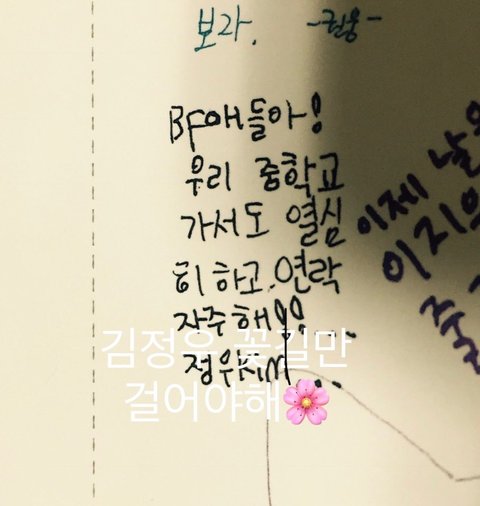 보라. -권웅-
BF애들아!
우리 중학교
가서도 열심
히 하고. 연락
자주해!!....
정우Kim...
김정우 꽃길만
걸어야해🌸
이제 날
이지의